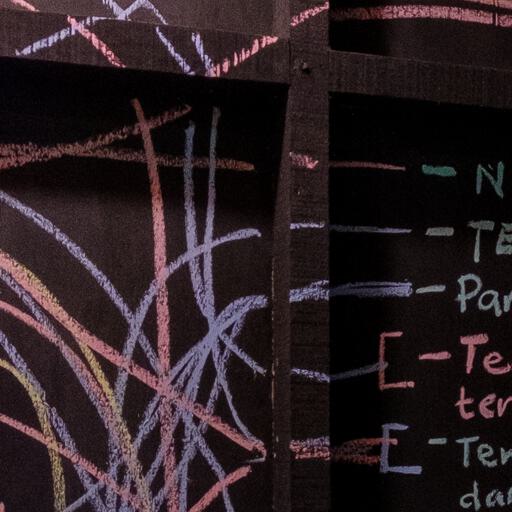 - N
- TE
- Par
- Te
ter
- Ter
dar